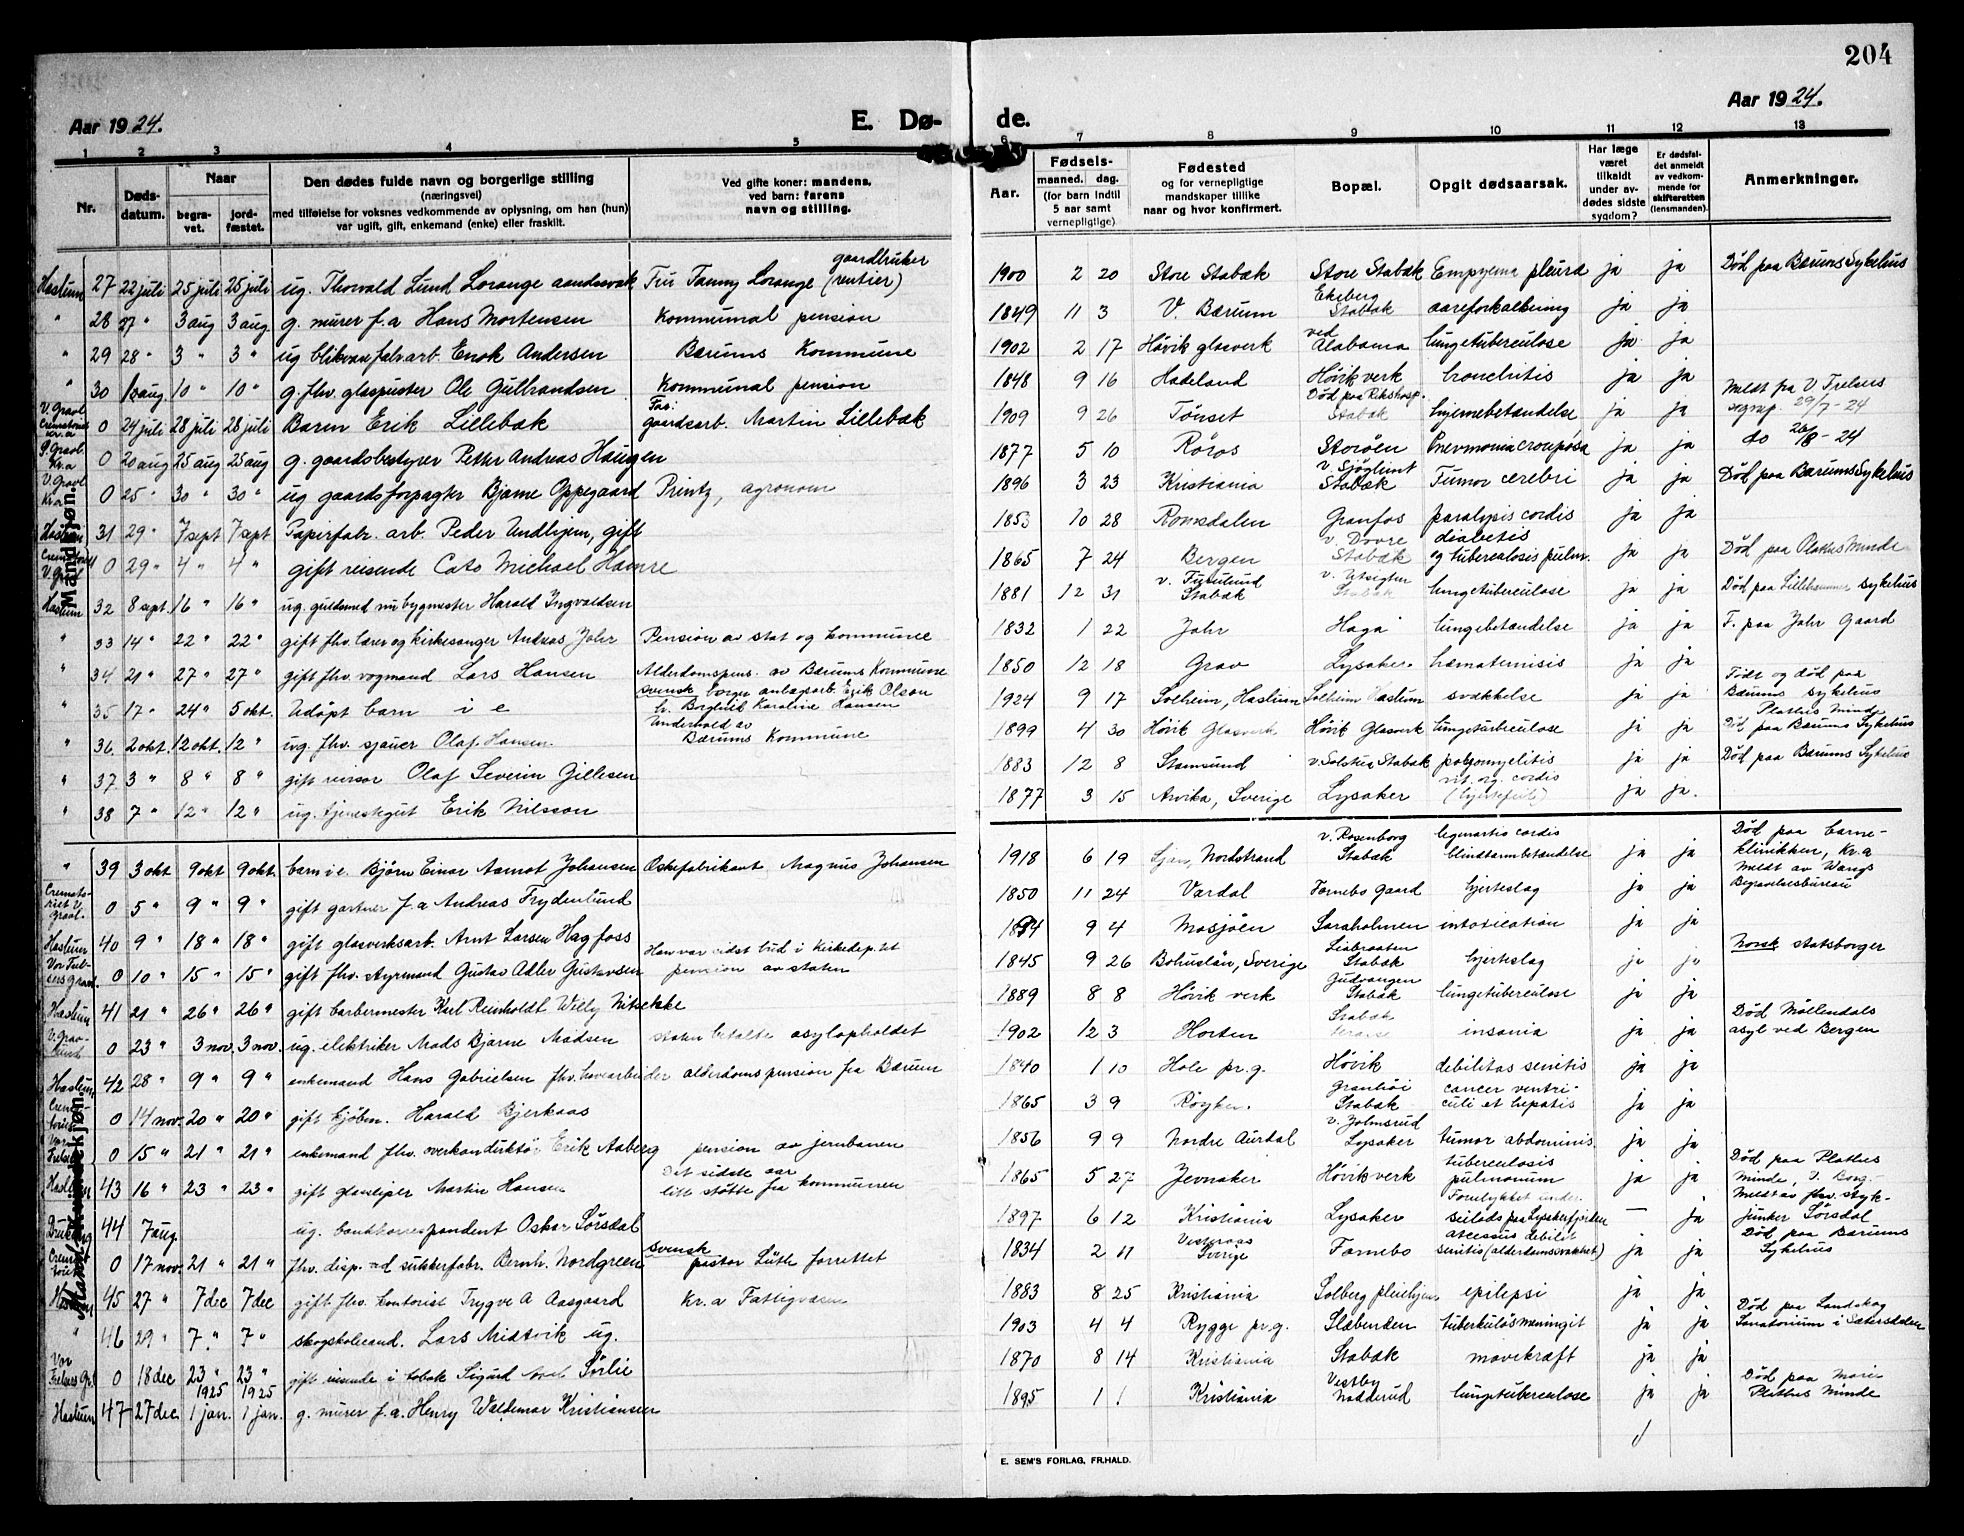 204
Aar 1924.
E. Dø-
de.
Aar 1924.
1 2 3 4 5 6 7 8 9 10 11 12 13
Nr.
Døds-
datum.
Naar
begra-
vet.
jord-
fæstet.
Den dødes fulde navn og borgerlige stilling
(næringsvei)
med tilføielse for voksnes vedkommende av oplysning, om han (hun)
var ugift, gift, enkemand (enke) eller fraskilt.
Ved gifte koner: mandens,
ved barn: farens
navn og stilling.
Aar.
Fødsels-
maaned. dag.
(for barn indtil
5 aar samt
vernepligtige)
Fødested
og for vernepligtige
mandskaper tillike
naar og hvor konfirmert.
Bopæl.
Opgit dødsaarsak.
Har læge
været
tilkaldt
under av-
dødes sidste
sygdom?
Er dødsfal-
det anmeldt
av vedkom-
mende for
skifteretten
(lensmanden).
Anmerkninger.
Mandskjøn.
Haslum 27 22 juli 25 juli 25 juli ug. Thorvald Lund Lorange Fru Fanny Lorange gaardbruker (rentier) 1900 2 20 Store Stabæk Store Stabæk Empyema pleura ja ja Død paa Bærums Sykehus
" 28 27 " 3 aug 3 aug. g. murer f.a Hans Mortensen Kommunal pension 1849 11 3 V. Bærum Ekeberg Stabæk aareforkalkning ja ja
" 29 28 " 3 " 3 " ug blikvarefabr.arb. Enok Andersen Bærums Kommune 1902 2 17 Høvik glasverk ved Alabama lungetuberculose ja ja
" 30 aug 10 " 10 " g. fhv. glaspuster Ole Gulbrandsen Kommunal pension 1848 9 16 Hadeland Høvik verk bronchitis ja ja
V. Gravl. Krematoriet Kr.a 0 24 juli 28 juli 28 juli Baren Erik Lillebæk Far: gaardsarb. Martin Lillebæk 1909 9 26 Tönset Død paa Rikshosp. Stabæk hjernebetændelse ja ja Meldt fra V Frelsers 29/7-24
Kr.a 0 20 aug 25 aug 25 aug g. gaardsbestyrer Petter Andreas Haugen 1877 5 10 Röros Storöen Pnevmonia crouposa ja ja do 26/8-24
V. Gravl Kr.a 0 25 " 30 " 30 " ug gaardsforpagter Bjarne Oppegaard Printz, agronom 1896 3 23 Kristiania v. Sjöglimt Stabæk Tumor cerebri ja ja Død paa Bærums Sykehus
Haslum 31 29 " 7 sept 7 sept Papirfabr. arb. Peder Undhjem, gift 1853 10 28 Romsdalen Granfos paralysis cordis ja ja
V. Gravl 0 29 " 4 " 4 " gift reisende Cato Michael Hamre 1865 7 24 Bergen v. Dovre Stabæk diabetis og tuberculosis pulm. ja ja Død paa Plathes Minde
Haslum 32 8 sept. 16 " 16 " ug. guldsmed nu bygmester Harald Ingvaldsen 1881 12 31 Stabæk v. Utsigten Stabæk lungetuberculose ja ja Død paa Lillehammer Sykehus
" 33 14 " 22 " 22 " gift fhv. lærer og kirkesanger Andreas Jahr Pension av stat og kommune 1832 1 22 Jahr Haga lungebetændelse ja ja F. paa Jahr Gaard
" 34 21 " 27 " 27 " gift fhv. vognmand Lars Hansen Alderdomspens. av Bærums Kommune 1850 12 18 Grav Lysaker. hæmatemisis ja ja
" 35 17 " 24 " 5 okt. Udöpt barn i e svensk borger anlægsarb. Erik Olson h. Borghild Karoline Hansen 1924 9 17 Solheim, Haslum Solheim Haslum svækkelse ja ja Födt og död paa Bærums sykehus
" 36 2 okt. 12 okt. 12 " ug. fhv. sjauer Olaf Hansen. Underhold av Bærums Kommune 1899 4 30 Høvik Glasverk Høvik Glasverk lungetuberculose ja ja Plathes Minde Død paa Bærums Sykehus
" 37 3 " 8 " 8 " gift revisor Olaf Severin Gillesen 1883 12 8 Stamsund v. Solstua Stabæk poliomyelitis ja ja Død paa Bærums Sykehus
" 38 7 " 12 " 12 " ug. tjenestegut Erik Nilsson 1877 3 15 Arvika, Sverige Lysaker vit. org. cordis (hjertefeil) ja ja.
" 39 3 okt 9 okt 9 okt. barn i e. Bjørn Einar Aamot Johansen Oskefabrikant Magnus Johansen 1918 6 19 Ljan, Nordstrand v. Rosenborg Stabæk cordis blindtarmbetændelse ja ja Død paa barne- klinikken, Kr.a
Meldt av Wangs Begravelsesbureau
Cremato- riet V. Gravl. 0 5 " 9 " 9 " gift gartner f.a Andreas Frydenlund 1850 11 24 Vardal Fornebo Gaard hjerteslag ja ja
Haslum 40 9 " 18 " 18 " gift glasverksarb. Arnt Larsen Hagfoss 1894 9 4 Mosjöen Saraholmen intoxication ja ja
Vor Frel- sers Gravl. 0 10 " 15 " 15 " gift fhv. styrmand Gustav Adler Gustavsen Han var sidst bud i Kirkedep.tet pension av staten 1845 9 26 Bohuslän, Sverige Stabæk hjerteslag ja ja Norsk statsborger
Haslum 41 21 " 26 " 26 " gift barbermester Karl Reinholdt Willy Nitschke 1889 8 8 Høvik verk Gudvangen Stabæk lungetuberculose ja ja
V. Grav- lund 0 23 " 3 nov. 3 nov. ug. elektriker Mads Bjarne Madsen staten betalte asylopholdet 1902 12 3 Horten Stabæk insania ja ja Død Möllendals asyl ved Bergen
Haslum 42 28 " 9 " 9 " enkemand Hans Gabrielsen fhv. havearbeider alderdomspension fra Bærum 1840 1 10 Hole pr.g. Høvik debilitas senilis ja ja
0 14 nov. 20 " 20 " gift kjöbm. Harald Bjerkaas 1865 3 9 Røyken. Granhöi Stabæk cancer ventri- culi et hepatis ja ja
Vor Frelsers 0 15 " 21 " 21 " enkemand fhv. overkonduktör Erik Aaberg pension av jernbanen 1856 9 9 Nordre Aurdal Lysaker tumor abdominis ja ja
Haslum 43 16 " 23 " 23 " gift glassliper Martin Hansen Det sidste aar litt støtte fra kommunen 1865 5 27 Jevnaker Høvik verk tuberculosis pulmonum ja ja Død paa Plathes Minde,
44 7 aug. ug. bankkorrespondent Oskar Sørsdal 1897 6 12 Kristiania Lysaker Forulykket under seilads paa Lysakerfjorden — ja Meldt as fhv. styk- junker Sørsdal
0 17 nov. 21 " 21 " fhv. disp. ved sukkerfabr. Bernh. Nordgreen svensk pastor Lüthe forrettet 1834 2 11 Vesteraas Sverige Fornebo debilit senilis (alderdomssvakhet) ja ja Død paa Bærums Sykehus
Haslum 45 27 " 7 dec 7 dec gift fhv. kontorist Trygve A Aasgaard Kr.a Fattigvæsen 1883 8 25 Kristiania Solberg pleiehjem epilepsi ja ja
" 46 29 " 7 " 7 " skogskolecand. Lars Midtvik ug. 1903 4 4 Rygge pr.g. Slæbenden tuberkuløs meningit ja ja Død paa Landskog Sanatorium i Sætersdalen
Vor Frelsers Gr. 0 18 dec 23 " 23 " gift reisende i tobak Sigurd Sörlie 1870 8 14 Kristiania Stabæk mavekræft ja ja
Haslum 47 27 dec. 1925 1 jan. 1925 1 jan. g. murer f.a. Henry Waldemar Kristiansen 1895 1 1 Kristiania Vestby Nadderud lungetuberculose ja ja Død paa Plathes Minde
E. SEM'S FORLAG, FR.HALD.